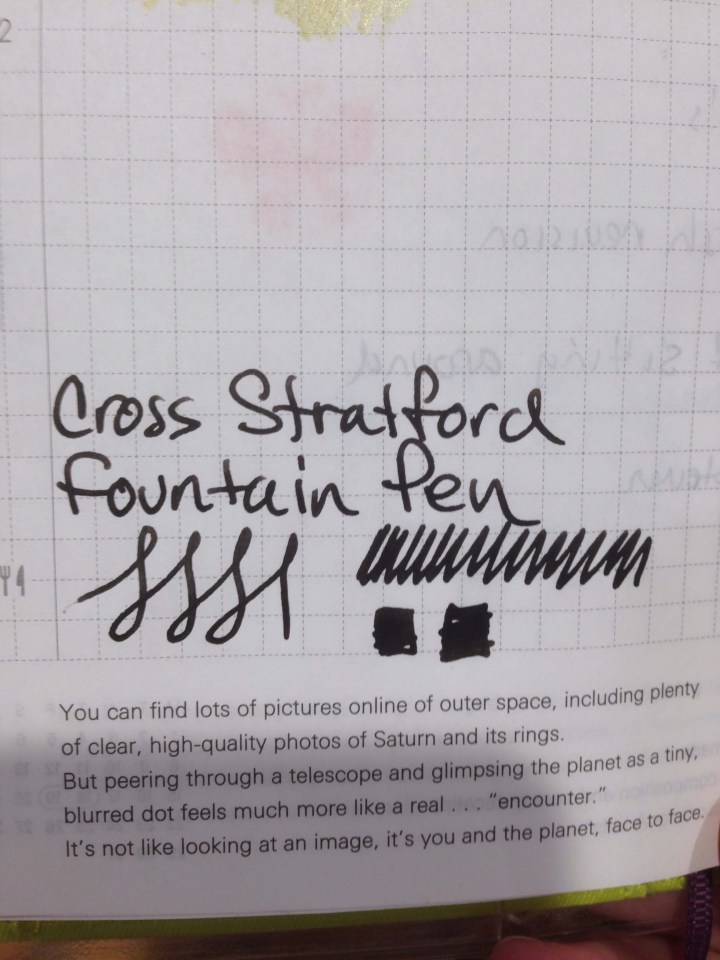 2
Cross Stratford
Fountain Pen
You can find lots of pictures online of outer space, including plenty
of clear, high-quality photos of Saturn and its rings.
But peering through a telescope and glimpsing the planet as a tiny,
blurred dot feels much more like a real . . . "encounter."
It's not like looking at an image, it's you and the planet, face to face.